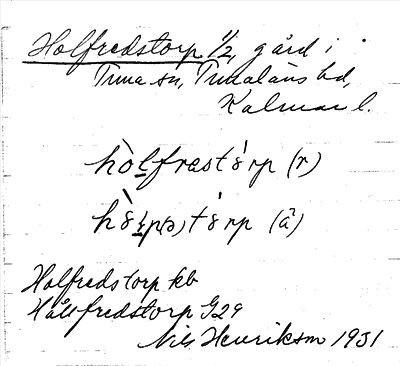 Holfredstorp 1/2, gård i
Tuna sn, Tunaläns hd,
Kalmar l.
hòlfrastórp (r)
tórp (ä)
Holfredstorp kb
Hållfredstorp G29
Nils Henriksson 1931